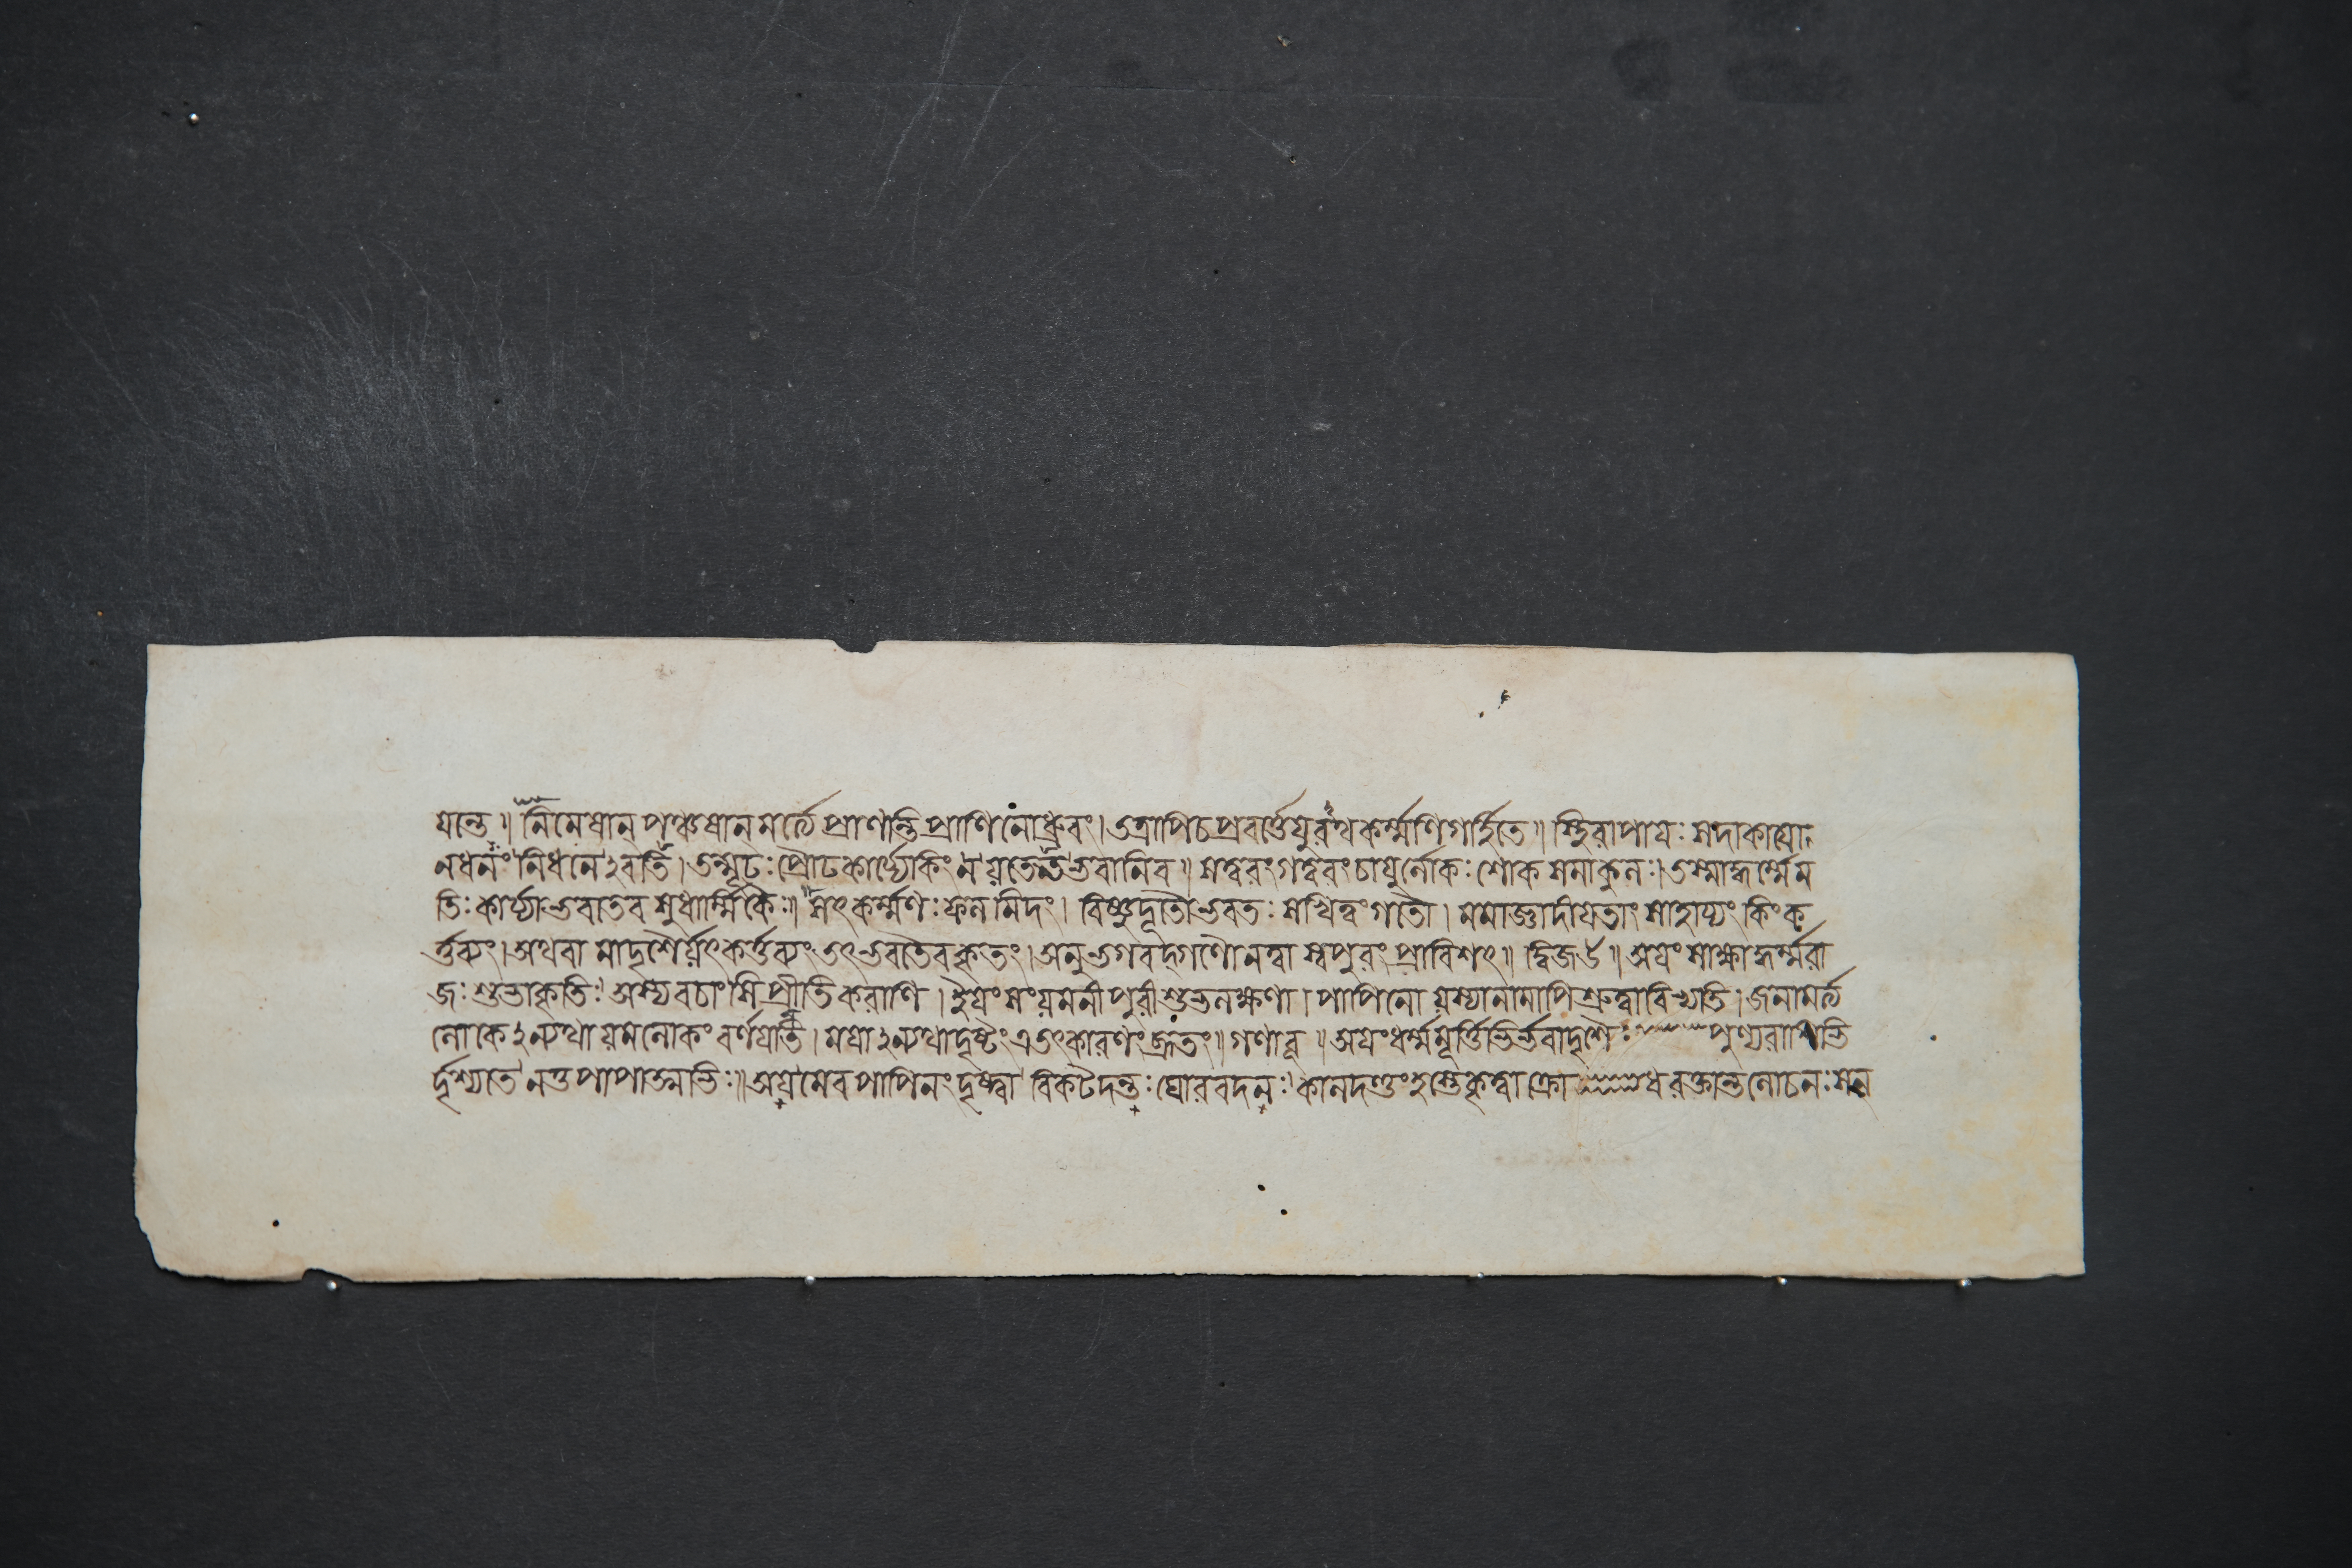 যান্ত॥ নিমেষান্ পঞ্চষান্ মর্ত্ত্যে প্রাণন্তি প্রাণিনো ধ্রুবং। তত্রাপি চ প্রবর্ত্তেয়ুরঘকর্ম্মণি গর্হিতে॥ স্থিরাপায়ঃ সদাকায়ো
ন ধনং নিধনেঽবতি। তন্মূঢঃ প্রৌঢকার্য্যে কিং ন যতেত ভবানিব॥ সত্বরং গত্বরং চায়ুর্লোকঃ শোকসমাকুলঃ। তস্মাদ্ধর্ম্মে ম
তিঃ কার্য্যা ভবতেব সুধার্ম্মিকৈঃ॥ সৎকর্ম্মণঃ ফলমিদং। বিষ্ণুদূতৌ ভবতঃ সখিত্বং গতৌ। মমাজ্ঞা দীয়তাং সাহায্যং কিং ক
র্ত্তব্যং। অথবা মাদৃশৈর্যৎ কর্ত্তব্যং তৎ ভবতৈব কৃতং। অনু ভগবদ্গণৌ নত্বা স্বপুরং প্রাবিশৎ॥ দ্বিজউ॥ অয়ং সাক্ষাদ্ধর্ম্মরা
জঃ শুভাকৃতিঃ। অস্য বচাংসি প্রীতিকরাণি। ইয়ং সংযমনী পুরী শুভলক্ষণা। পাপিনো যস্যা নামাপি শ্রুত্বা বিভ্যতি। জনা মর্ত্ত্য
লোকেঽন্যথা যমলোকং বর্ণয়ন্তি। ময়াঽন্যথা দৃষ্টং এতৎকারণং ব্রূতং॥ গণাবূ॥ অয়ং ধর্ম্মমূর্ত্তির্ভবাদৃশৈঃ পুণ্যরাশিভি
র্দৃশ্যতে নতু পাপাত্মভিঃ॥ অয়মেব পাপিনং দৃষ্ট্বা বিকটদন্তঃ ঘোরবদনঃ কালদণ্ডং হস্তে কৃত্বা ক্রোধরক্তান্তলোচনঃ সন